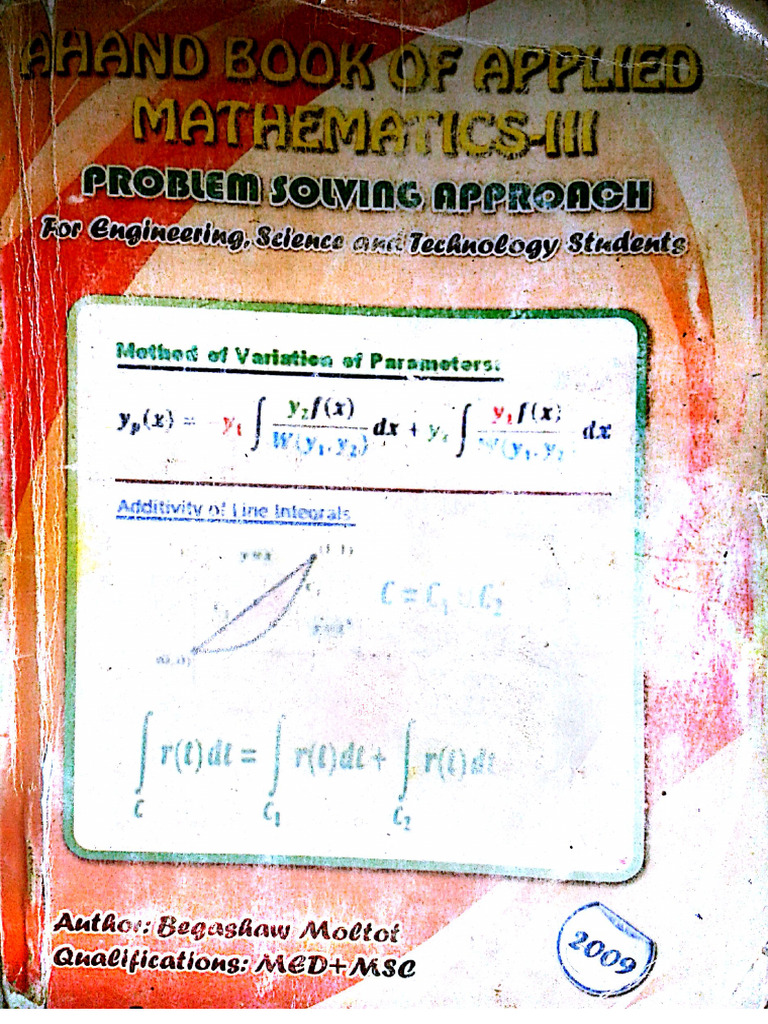 AHAND BOOK OF APPLIED
MATHEMATICS-III
PROBLEM SOLVING APPROACH
For Engineering, Science and Technology Students
Method of Variation of Parameters:
y_p(x) = -y₁ ∫ y₂f(x)/W(y₁, y₂) dx + y₂ ∫ y₁f(x)/W(y₁, y₂) dx
Additivity of Line Integrals
y = x
C = C₁ C₂
∫_C r(t)dt = ∫_C₁ r(t)dt + ∫_C₂ r(t)dt
Author: Begashaw Moltot
Qualifications: MED+MSC
2009